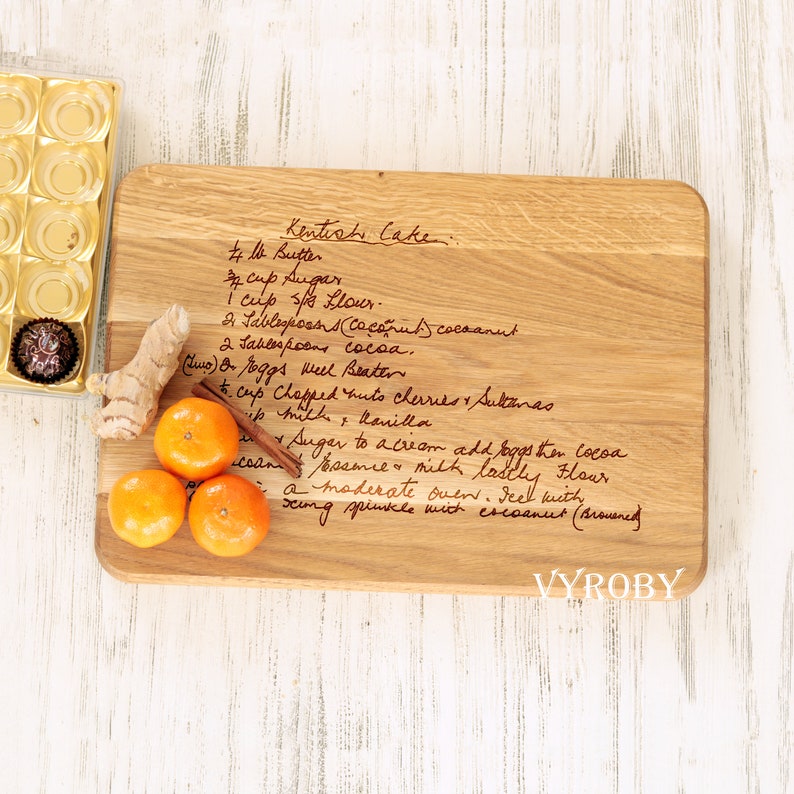 Kentish Cake.
1/4 lb Butter
3/4 cup Sugar
1 cup S/R Flour.
2 Tablespoons (cocoñut) cocoanut
2 Tablespoons cocoa.
(Two) 2 Eggs Well Beaten
cup Chopped nuts cherries & Sultanas
cup milk & Vanilla
& Sugar to a cream add Eggs then cocoa
Essence & milk lastly Flour
a moderate oven. Ice with
sprinkle with cocoanut (Browned)
VYROBY